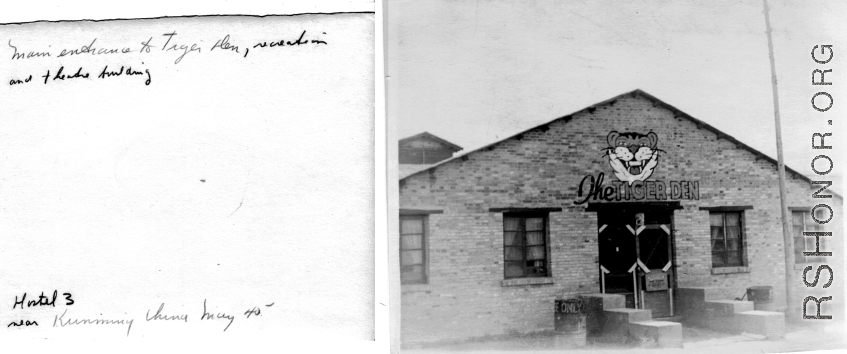 Main entrance to Tiger Den, recreation
and theatre building
Hostel 3
near Kunming China May 45
The TIGER DEN
E ONLY
RSHONOR.ORG